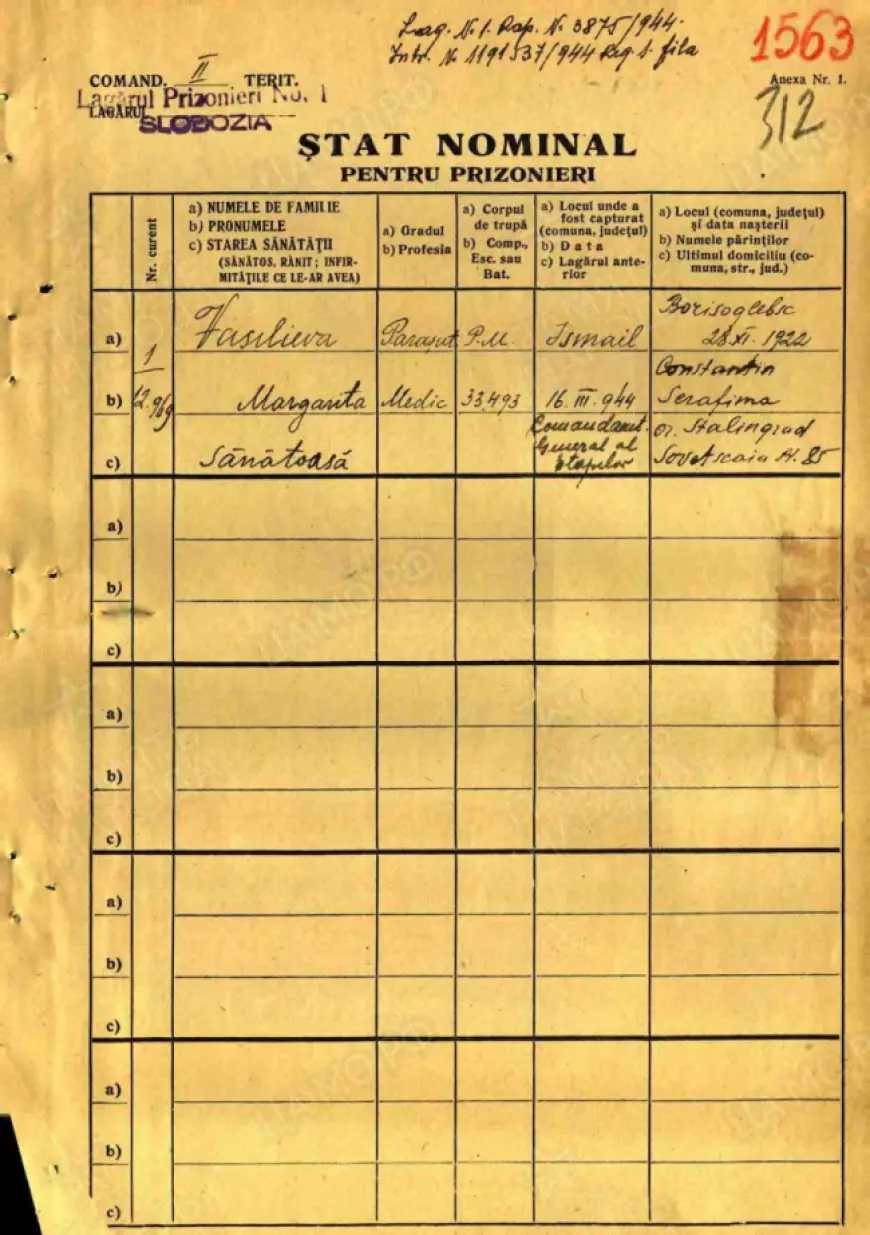 Lag. N. 1. Rap. N. 3875/944.
Intr. N. 1191537/944 Reg. 1. fila
1563
COMAND. II TERIT.
Anexa Nr. 1.
Lagărul Prizonieri No. 1
LAGĂRUL
SLOBOZIA
312
ȘTAT NOMINAL
PENTRU PRIZONIERI
Nr. curent
a) NUMELE DE FAMILIE
b) PRONUMELE
c) STAREA SĂNĂTĂȚII
(SĂNĂTOS, RĂNIT; INFIR-
MITĂȚILE CE LE-AR AVEA)
a) Gradul
b) Profesia
a) Corpul
de trupă
b) Comp.,
Esc. sau
Bat.
a) Locul unde a
fost capturat
(comuna, județul)
b) Data
c) Lagărul ante-
rior
a) Locul (comuna, județul)
și data nașterii
b) Numele părinților
c) Ultimul domiciliu (co-
muna, str., jud.)
a) Vasilieva Parașut. P.M. Ismail Borisoglebsc
28.XI.1922
1
12.969
b) Margarita Medic 33.493 16.III.944 Constantin
Serafima
c) Sănătoasă Comandamt.
General al
Etapelor or. Stalingrad
Sovetscaia N. 85
a)
b)
c)
a)
b)
c)
a)
b)
c)
a)
b)
c)